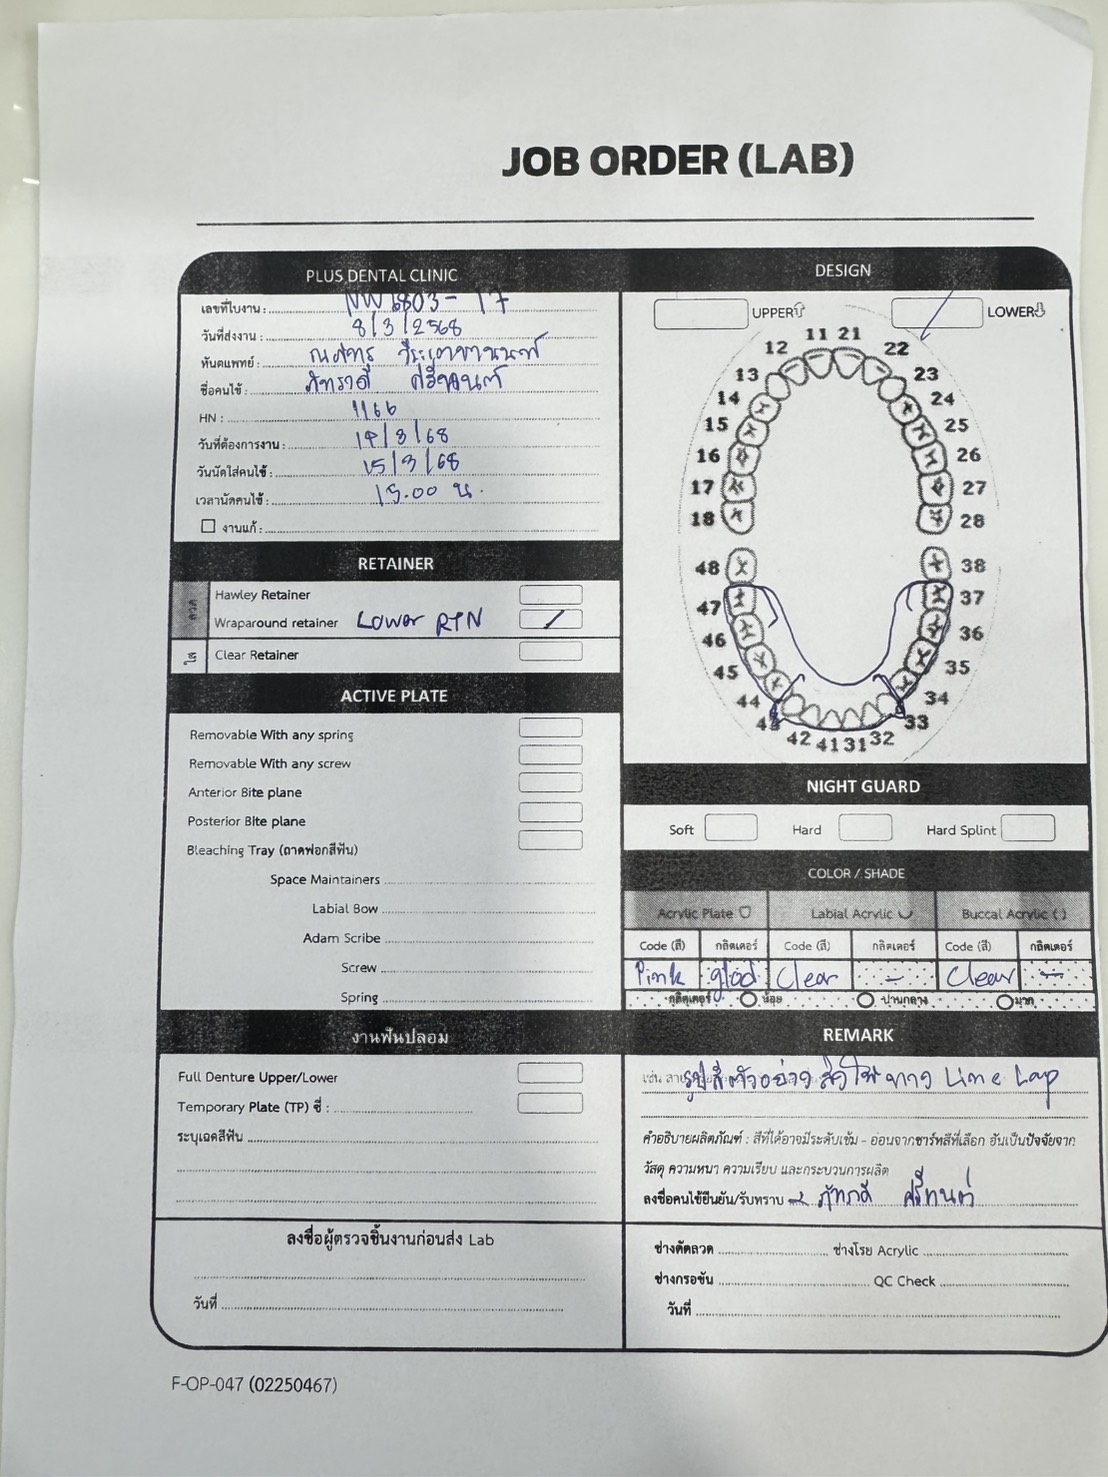 JOB ORDER (LAB)
PLUS DENTAL CLINIC
เลขที่ใบงาน : NW6803-17
วันที่ส่งงาน : 8/3/2568
ทันตแพทย์ :
ชื่อคนไข้ :
HN : 1166
วันที่ต้องการงาน : 14/3/68
วันนัดใส่คนไข้ : 15/3/68
เวลานัดคนไข้ : 15.00 น.
งานแก้ :
RETAINER
ลวด
Hawley Retainer
Wraparound retainer Lower RTN
ใส
Clear Retainer
ACTIVE PLATE
Removable With any spring
Removable With any screw
Anterior Bite plane
Posterior Bite plane
Bleaching Tray (ถาดฟอกสีฟัน)
Space Maintainers
Labial Bow
Adam Scribe
Screw
Spring
งานฟันปลอม
Full Denture Upper/Lower
Temporary Plate (TP) ซี่ :
ระบุเฉดสีฟัน
ลงชื่อผู้ตรวจชิ้นงานก่อนส่ง Lab
วันที่
DESIGN
UPPER LOWER
11 21
12 22
13 23
14 24
15 25
16 26
17 27
18 28
48 38
47 37
46 36
45 35
44 34
43 33
42 41 31 32
NIGHT GUARD
Soft Hard Hard Splint
COLOR / SHADE
Acrylic Plate Labial Acrylic Buccal Acrylic ( )
Code (สี) กลิตเตอร์ Code (สี) กลิตเตอร์ Code (สี) กลิตเตอร์
Pink glod Clear - Clear -
กลิตเตอร์ น้อย ปานกลาง มาก
REMARK
รูปสีตัวอย่าง ส่งให้ทาง Line Lap
คำอธิบายผลิตภัณฑ์ : สีที่ได้อาจมีระดับเข้ม - อ่อนจากชาร์ทสีที่เลือก อันเป็นปัจจัยจาก
วัสดุ ความหนา ความเรียบ และกระบวนการผลิต
ลงชื่อคนไข้ยืนยัน/รับทราบ
ช่างดัดลวด ช่างโรย Acrylic
ช่างกรอขัน QC Check
วันที่
F-OP-047 (02250467)